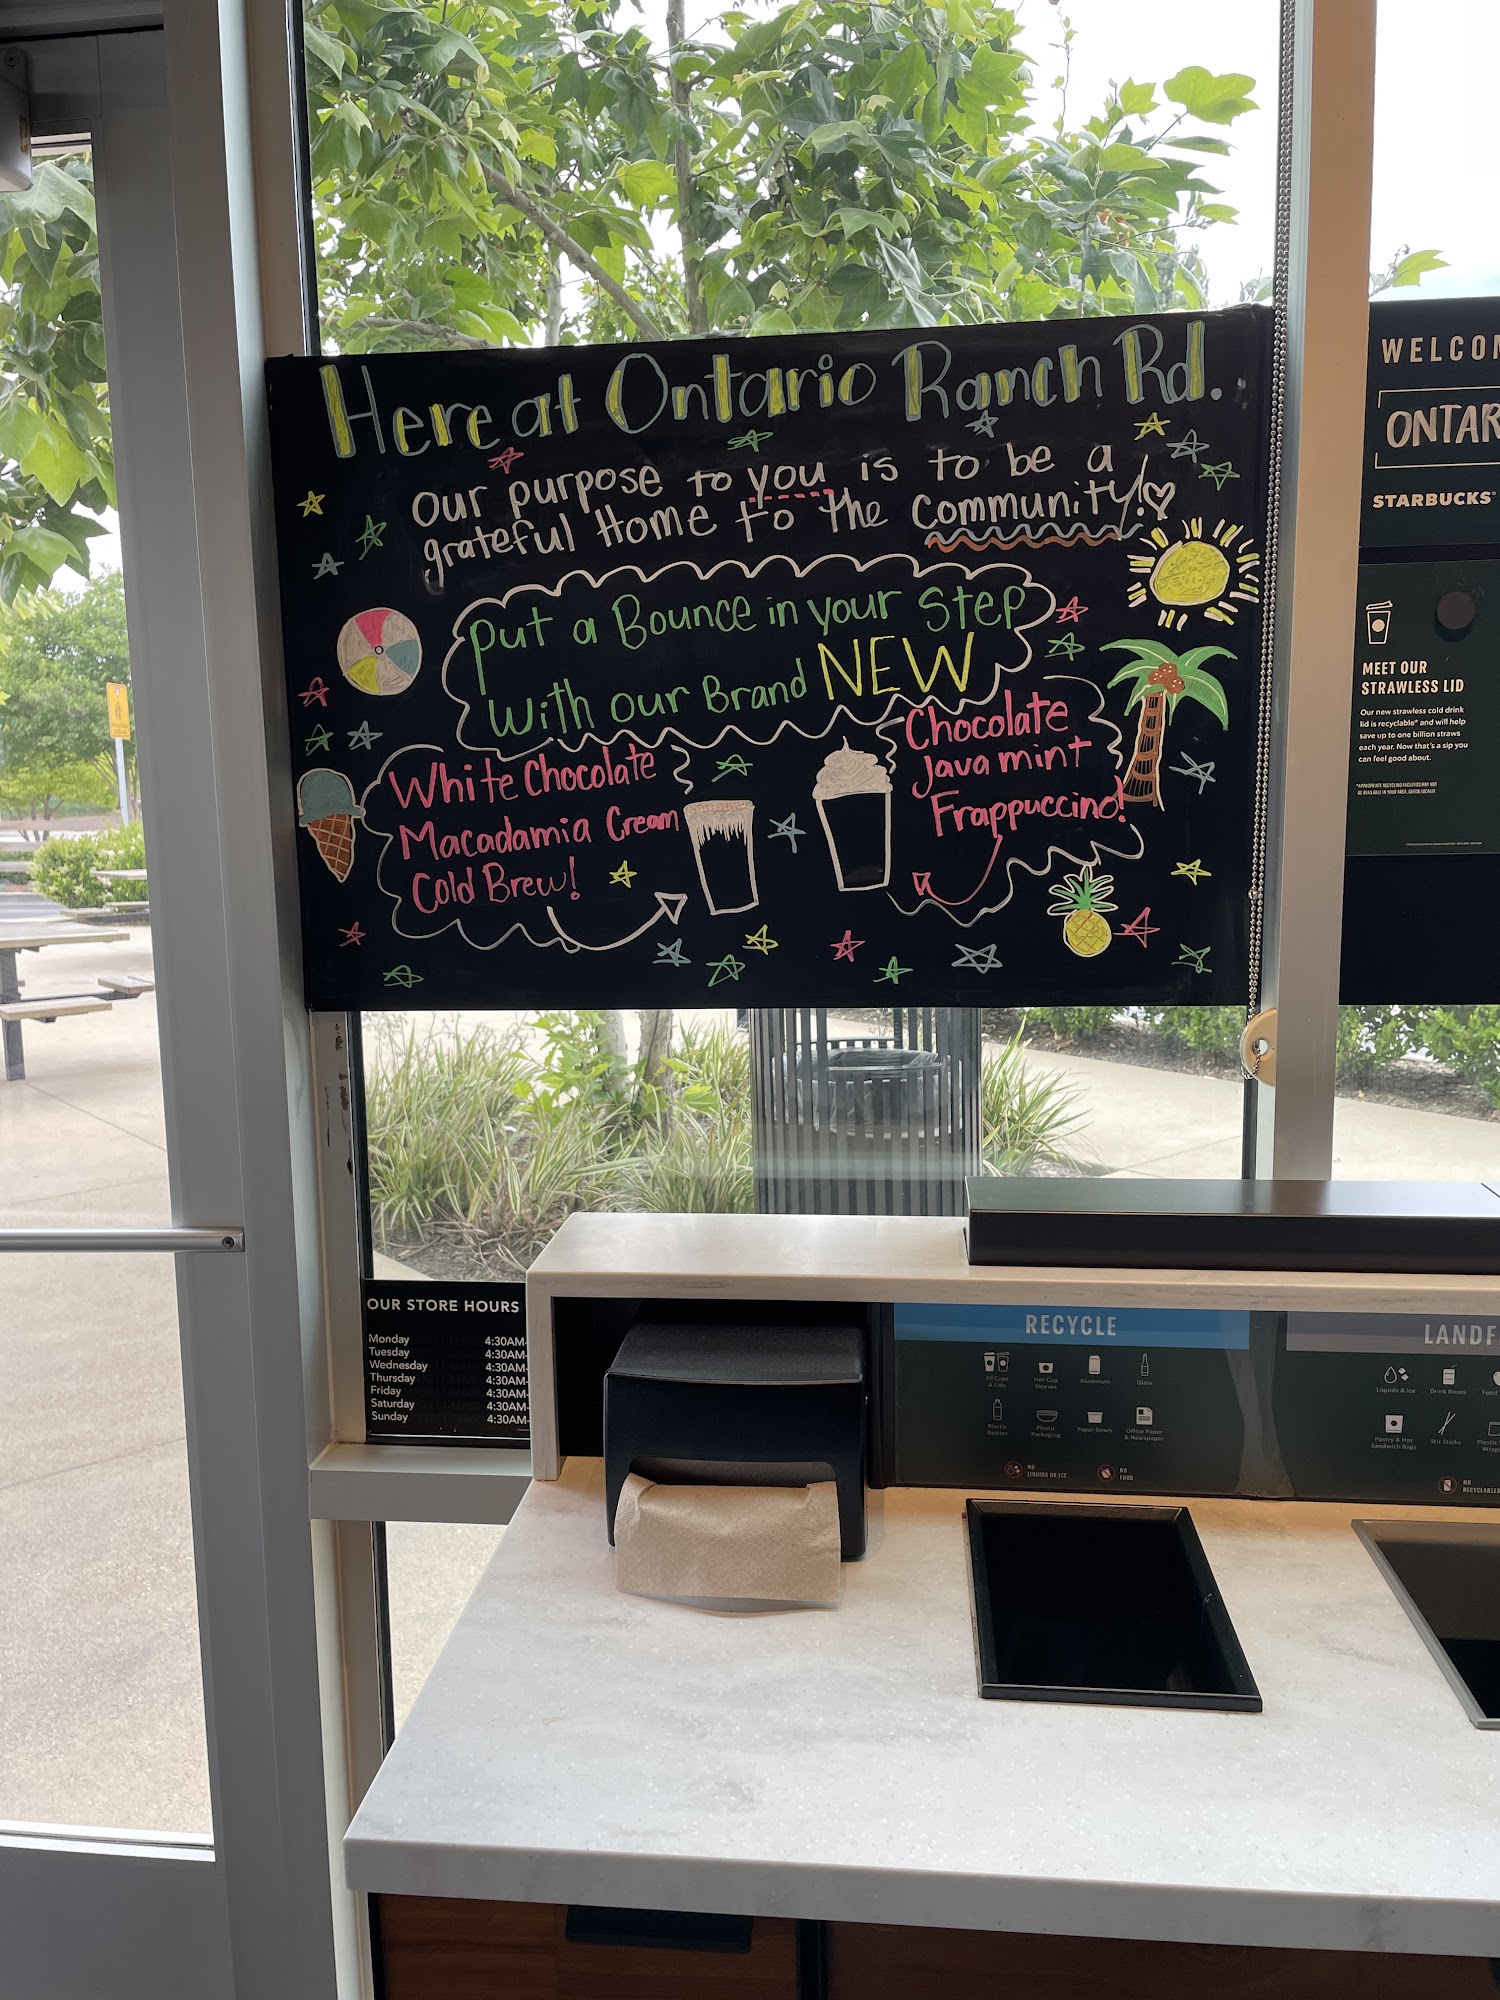 Here at Ontario Ranch Rd.
our purpose to you is to be a
grateful Home to the community!
Put a Bounce in your Step
With our Brand NEW
White Chocolate
Macadamia Cream
Cold Brew!
Chocolate
Java mint
Frappuccino!
STARBUCKS
MEET OUR
STRAWLESS LID
Our new strawless cold drink
lid is recyclable* and will help
save up to one billion straws
each year. Now that's a sip you
can feel good about.
OUR STORE HOURS
Monday 4:30AM-
Tuesday 4:30AM-
Wednesday 4:30AM-
Thursday 4:30AM-
Friday 4:30AM-
Saturday 4:30AM-
Sunday 4:30AM-
RECYCLE
All Cups
& Lids
Hot Cup
Sleeves
Aluminum
Glass
Plastic
Bottles
Plastic
Packaging
Paper Bowls
Office Paper
& Newspaper
NO
LIQUIDS OR ICE
NO
FOOD
Liquids & Ice
Drink Boxes
Pastry & Hot
Sandwich Bags
Stir Sticks
NO